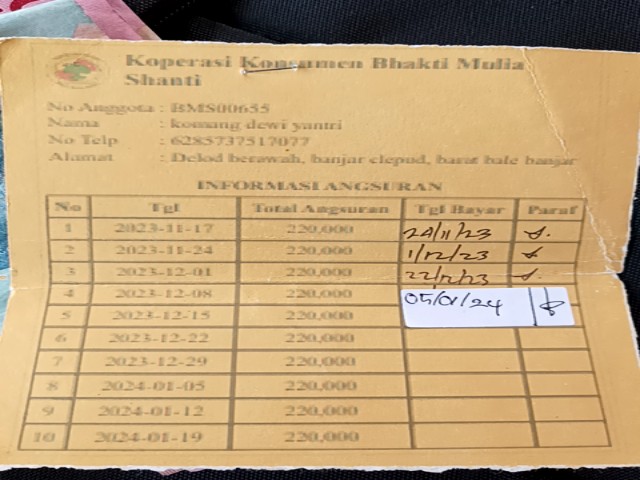 Koperasi Konsumen Bhakti Mulia
Shanti
No Anggota : BMS00655
Nama : komang dewi yantri
No Telp : 6285737517077
Alamat : Delod berawah, banjar clepud, barat bale banjar
INFORMASI ANGSURAN
No Tgl Total Angsuran Tgl Bayar Paraf
1 2023-11-17 220,000 24/11/23
2 2023-11-24 220,000 1/12/23
3 2023-12-01 220,000 22/12/23
4 2023-12-08 220,000 05/01/24
5 2023-12-15 220,000
6 2023-12-22 220,000
7 2023-12-29 220,000
8 2024-01-05 220,000
9 2024-01-12 220,000
10 2024-01-19 220,000